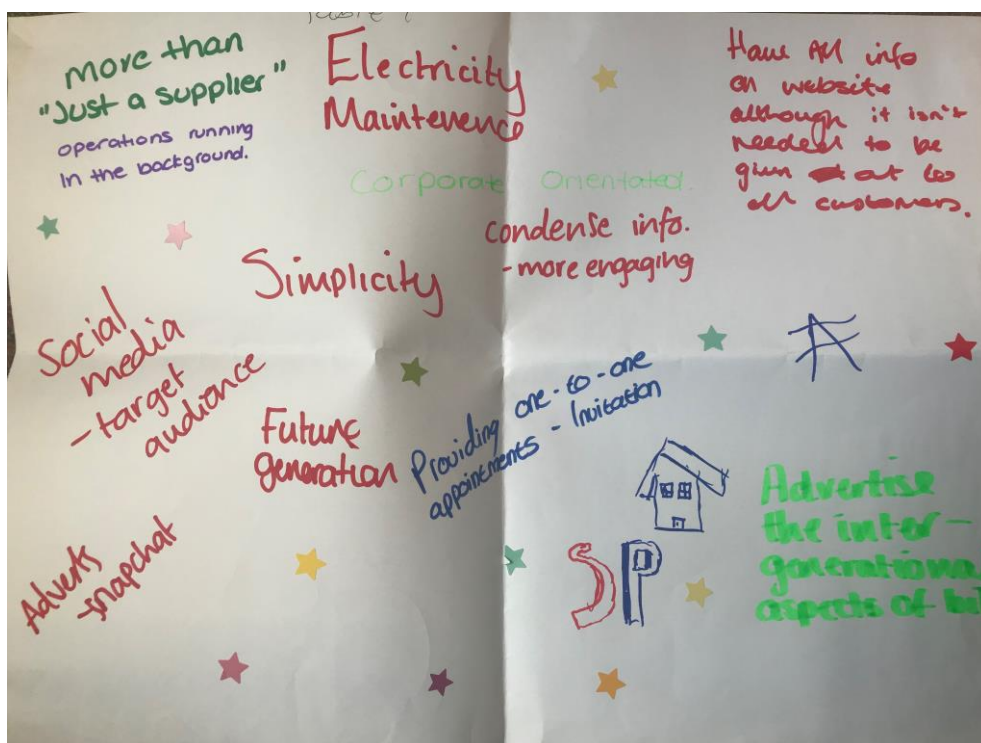 more than
"Just a supplier"
operations running
In the background.
Electricity
Maintenence
Corporate Orientated.
Have All info
on website
although it isn't
needed to be
given out to
all customers.
condense info.
- more engaging
Simplicity
Social
media
- target
audiance
Future
generation
Providing one-to-one
appointments - Invitation
Adverts
- snapchat
SP
Advertise
the inter-
generationa
aspects of